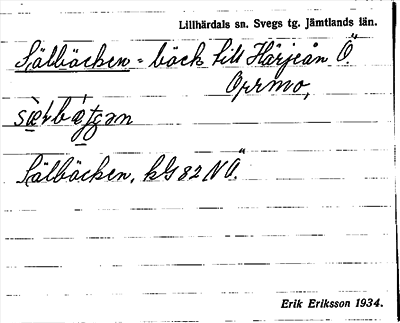 Lillhärdals sn. Svegs tg. Jämtlands län.
Sälbäcken = bäck till Härjeån Ö
Orrmo,
Sälbäcken, kG 82 NO.
Erik Eriksson 1934.